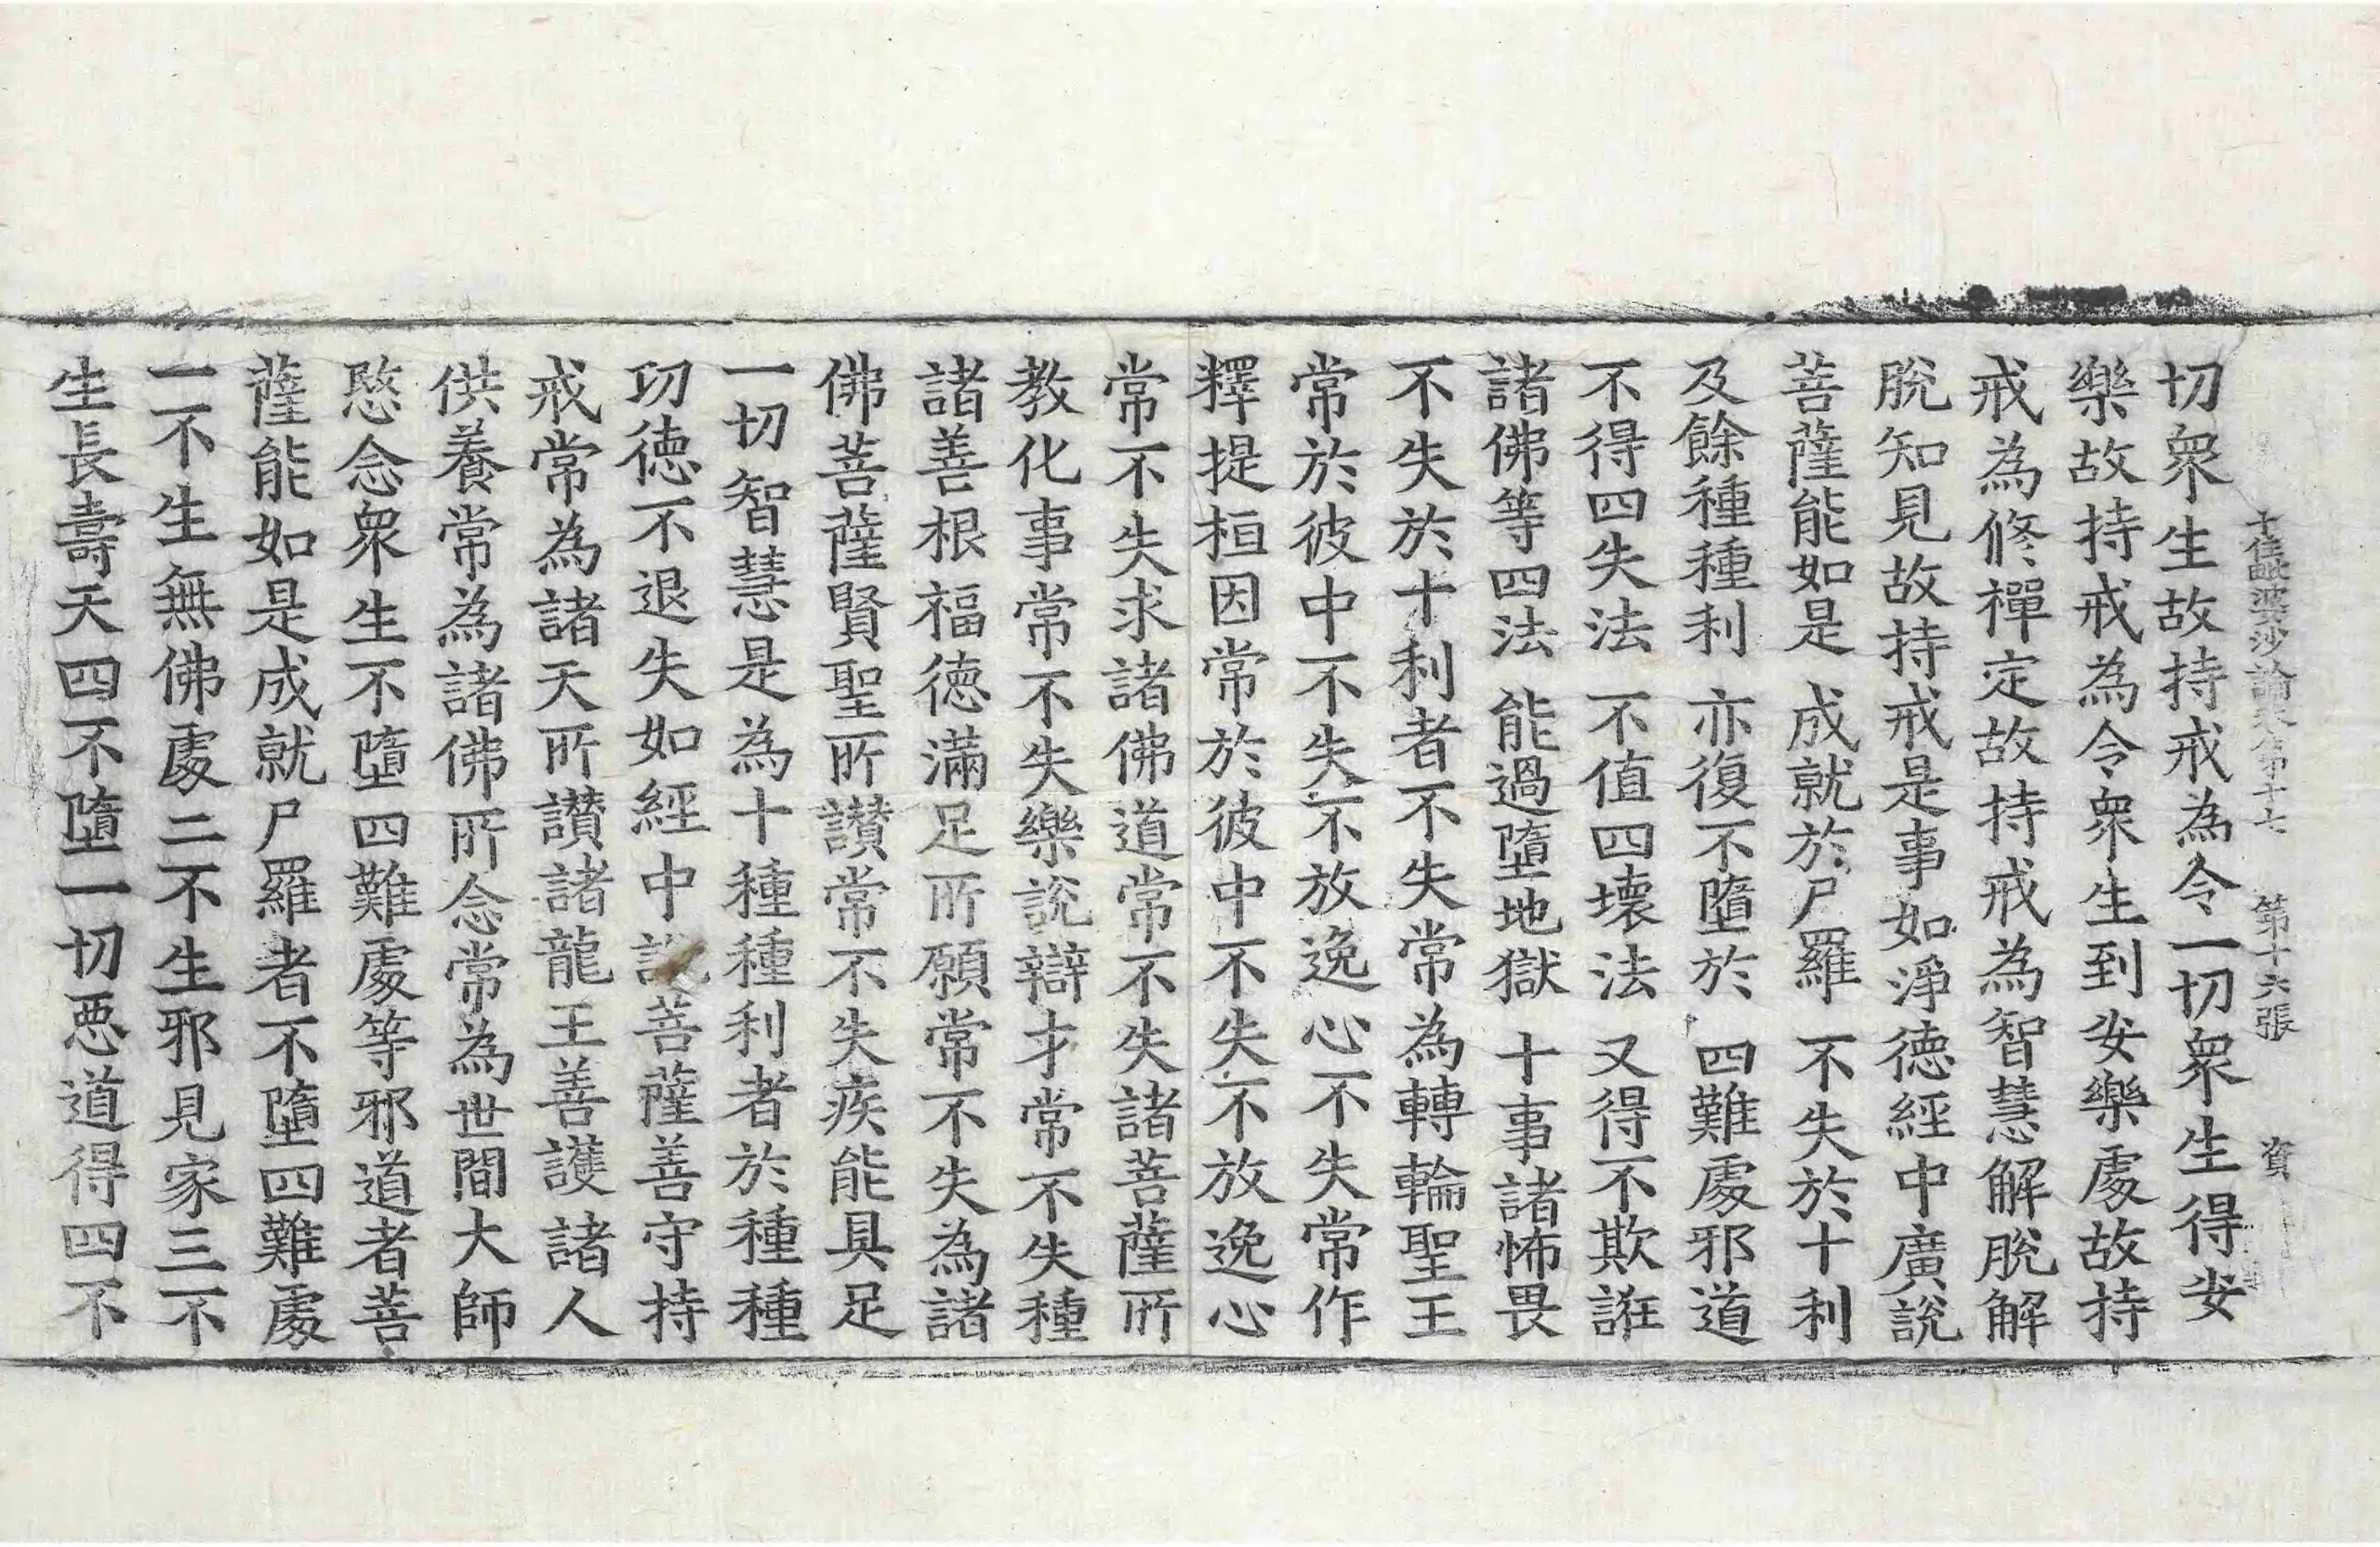 十住毗婆沙論卷第十七 第十六張 資
切衆生故持戒為令一切衆生得安
樂故持戒為令衆生到安樂處故持
戒為修禪定故持戒為智慧解脫解
脫知見故持戒是事如淨德經中廣說
菩薩能如是 成就於尸羅 不失於十利
及餘種種利 亦復不墮於 四難處邪道
不得四失法 不值四壞法 又得不欺誑
諸佛等四法 能過墮地獄 十事諸怖畏
不失於十利者不失常為轉輪聖王
常於彼中不失不放逸心不失常作
釋提桓因常於彼中不失不放逸心
常不失求諸佛道常不失諸菩薩所
教化事常不失樂說辯才常不失種
諸善根福德滿足所願常不失為諸
佛菩薩賢聖所讃常不失疾能具足
一切智慧是為十種種利者於種種
功德不退失如經中說菩薩善守持
戒常為諸天所讃諸龍王善護諸人
供養常為諸佛所念常為世間大師
愍念衆生不墮四難處等邪道者菩
薩能如是成就尸羅者不墮四難處
一不生無佛處二不生邪見家三不
生長壽天四不墮一切惡道得四不